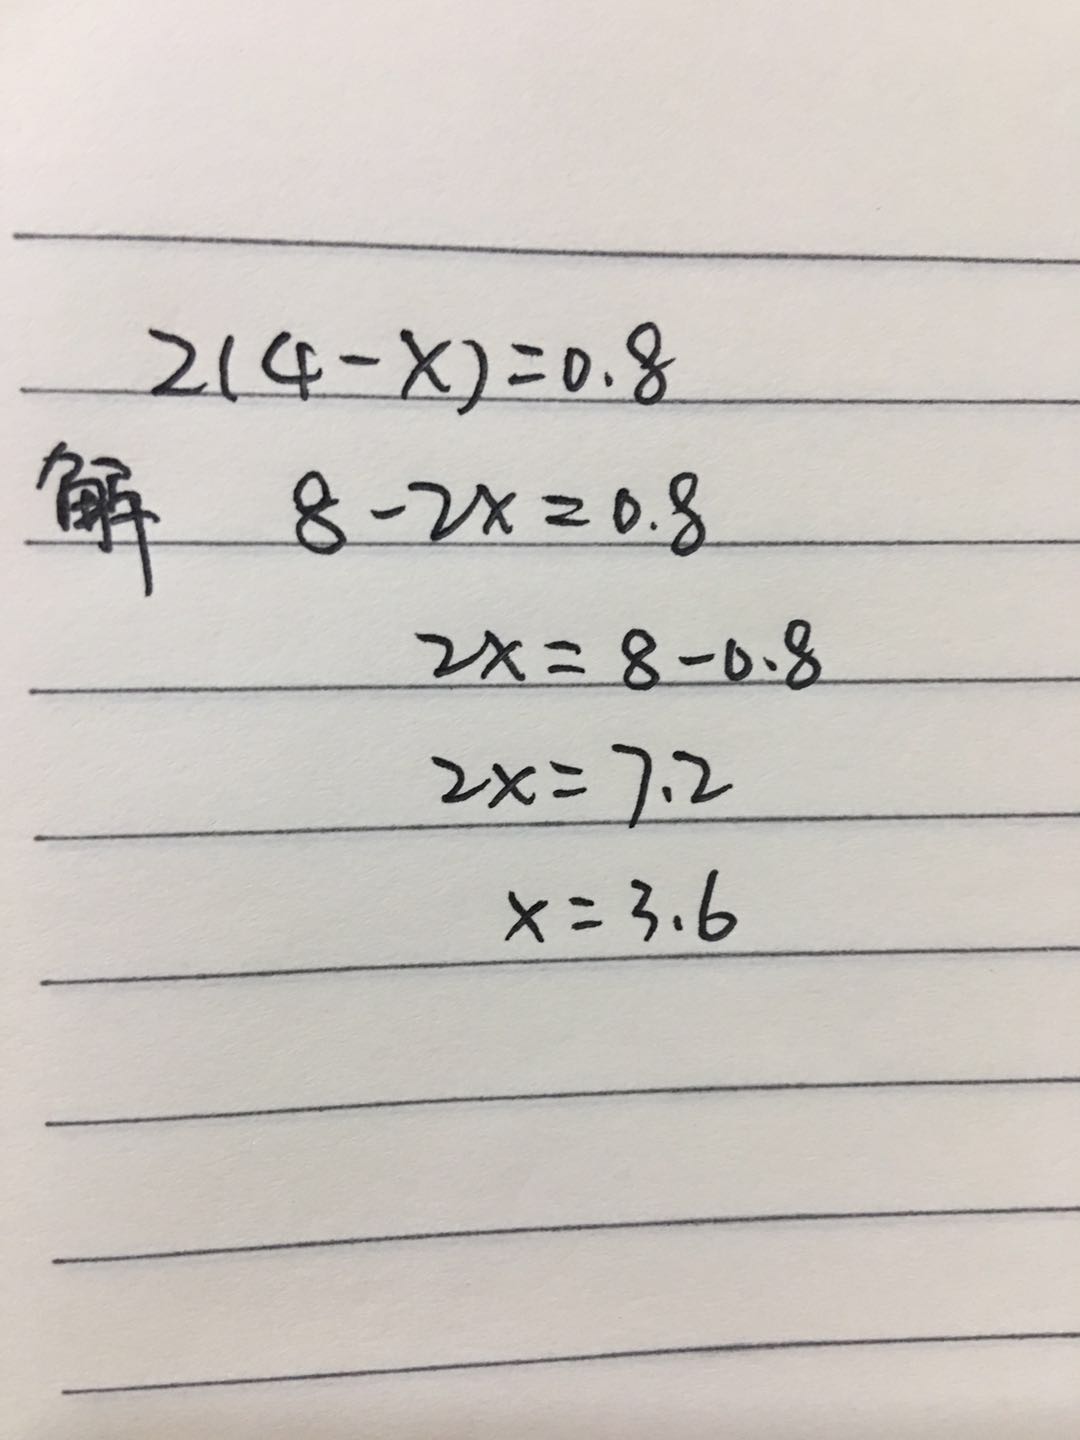 2(4-x)=0.8
解 8-2x=0.8
2x=8-0.8
2x=7.2
x=3.6